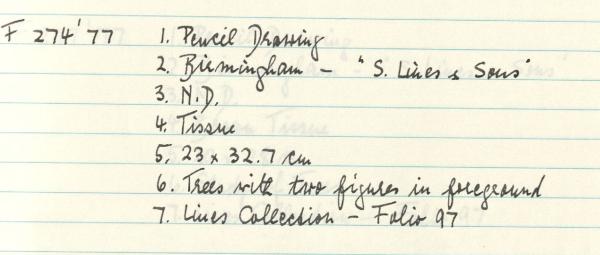 F 274'77 1. Pencil Drawing
2. Birmingham – "S. Lines & Sons"
3. N.D.
4. Tissue
5. 23 x 32.7 cm
6. Trees with two figures in foreground
7. Lines Collection – Folio 97